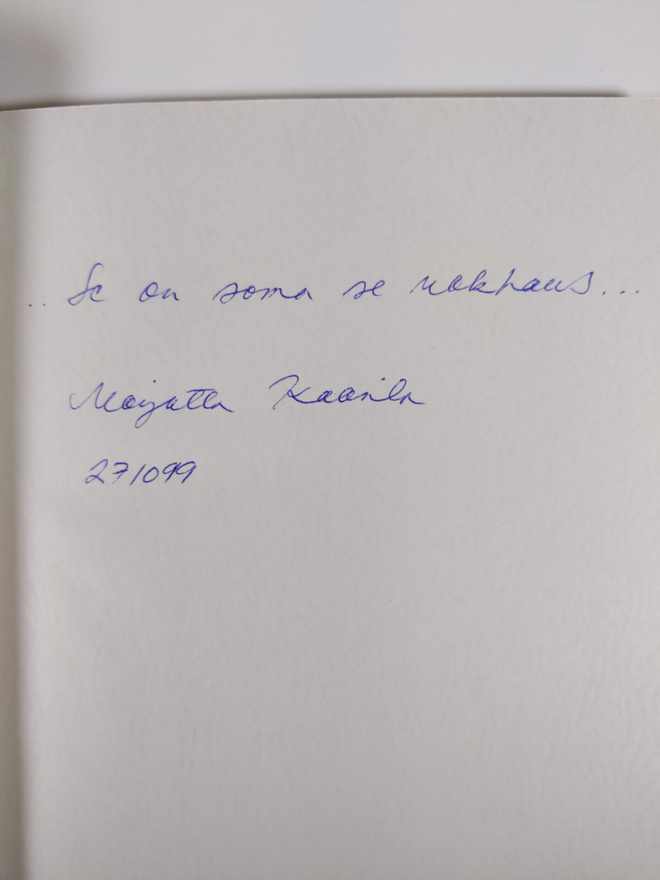 .. Se on soma se rakkaus...
Marjatta Kaarila
271099